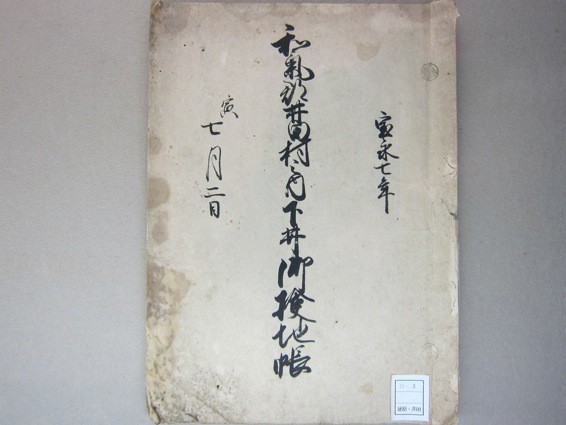 宝永七年
和氣郡井田村之内下井御検地帳
寅
七月二日